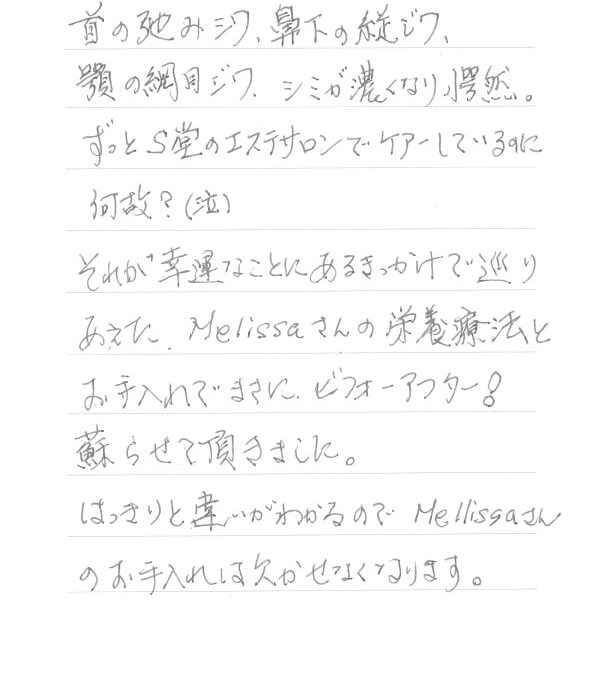 首の弛みシワ、鼻下の縦ジワ、
顎の網目ジワ、シミが濃くなり愕然。
ずっとS堂のエステサロンでケアーしているのに
何故？(泣)
それが幸運なことにあるきっかけで巡り
あえた、Melissaさんの栄養療法と
お手入れでまさに、ビフォーアフター！
蘇らせて頂きました。
はっきりと違いがわかるので Mellissaさん
のお手入れは欠かせなくなります。